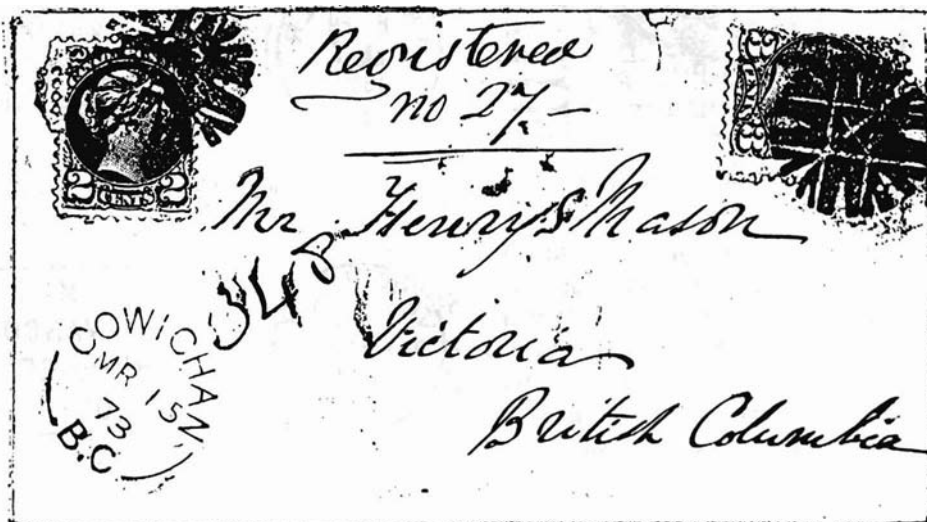 Registered
no 27 —
2 CENTS 2
Mr Henry S Mason
348
Victoria
British Columbia
COWICHAN
MR 15
73
B.C